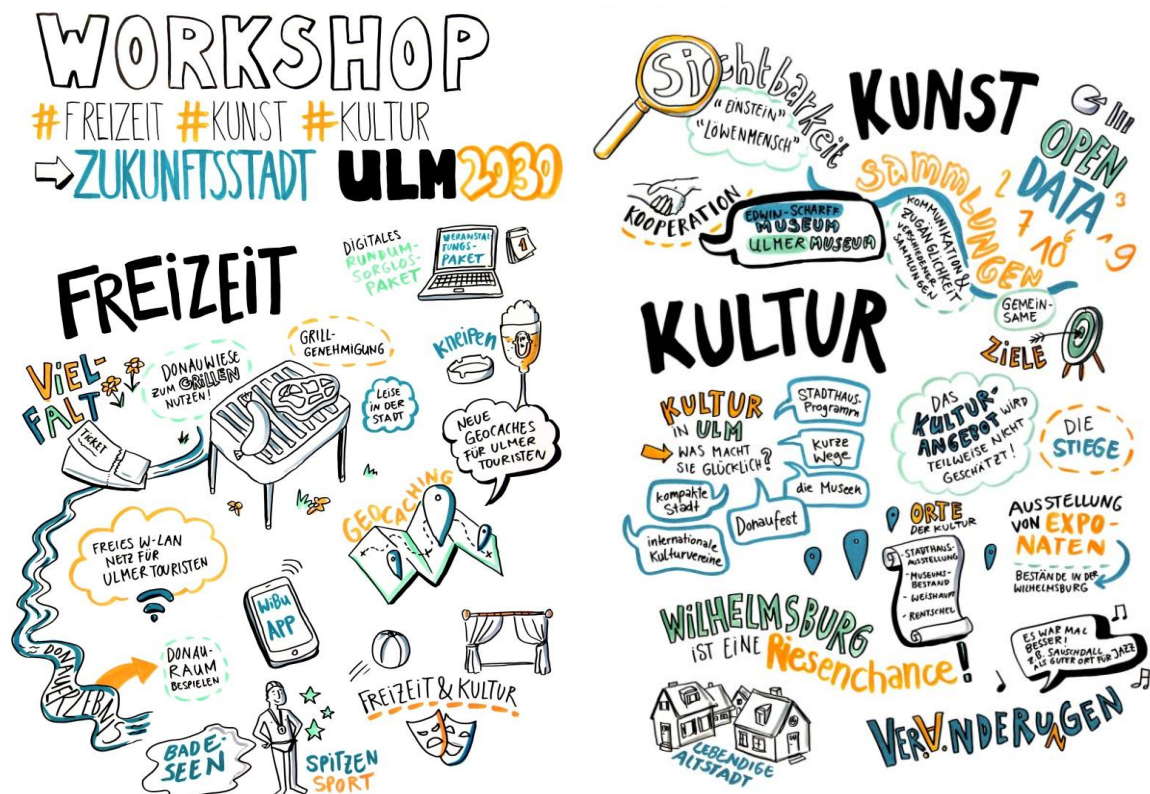 WORKSHOP
#FREIZEIT #KUNST #KULTUR
ZUKUNFTSSTADT ULM 2030
FREIZEIT
DIGITALES
RUNDUM-
SORGLOS-
PAKET
VERANSTAL
TUNGS-
PAKET
1
VIEL-
FALT
DONAUWIESE
ZUM GRILLEN
NUTZEN!
GRILL-
GENEHMIGUNG
KNEIPEN
LEISE
IN DER
STADT
TICKET
NEUE
GEOCACHES
FÜR ULMER
TOURISTEN
GEOCACHING
FREIES W-LAN
NETZ FÜR
ULMER TOURISTEN
WiBU
APP
DONAU-
RAUM
BESPIELEN
FREIZEIT & KULTUR
BADE
SEEN
SPITZEN
SPORT
Sichtbarkeit
"EINSTEIN"
"LÖWENMENSCH"
KUNST
OPEN
DATA
2
3
7
10
6
1
9
SAMMLUNGEN
KOMMUNIKATION &
ZUGÄNGLICHKEIT
VERSCHIEDENER
SAMMLUNGEN
KOOPERATION
EDWIN-SCHARFF
MUSEUM
ULMER MUSEUM
GEMEIN-
SAME
ZIELE
KULTUR
KULTUR
IN ULM
WAS MACHT
SIE GLÜCKLICH?
STADTHAUS-
Programm
Kurze
Wege
die Museen
Donaufest
kompakte
Stadt
internationale
Kulturvereine
DAS
KULTUR-
ANGEBOT WIRD
TEILWEISE NICHT
GESCHÄTZT!
DIE
STIEGE
ORTE
DER KULTUR
- STADTHAUS-
AUSSTELLUNG
- MUSEUMS-
BESTAND
- WEISHAUPT
- RENTSCHEL
AUSSTELLUNG
VON EXPO-
NATEN
BESTÄNDE IN DER
WILHELMSBURG
WILHELMSBURG
IST EINE Riesenchance!
ES WAR MAL
BESSER!
Z.B. SAUSCHDALL
ALS GUTER ORT FÜR JAZZ
LEBENDIGE
ALTSTADT
VERÄNDERUNGEN